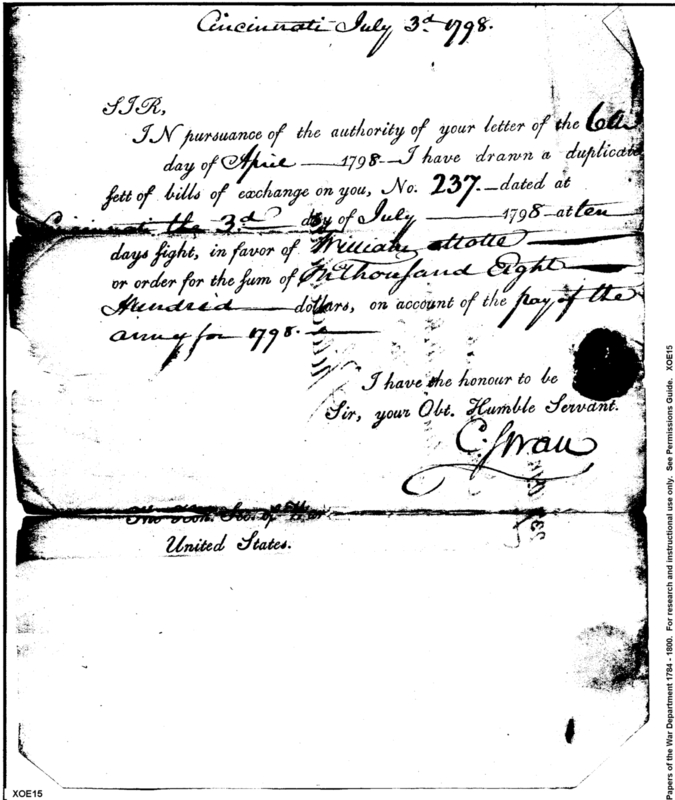 Cincinnati July 3.d 1798.
SIR,
IN pursuance of the authority of your letter of the 6th
day of April 1798 I have drawn a duplicate
sett of bills of exchange on you, No. 237. dated at
Cincinnati the 3.d day of July 1798 at ten
days sight, in favor of William
or order for the sum of Thousand Eight
Hundred dollars, on account of the pay of the
army for 1798.
I have the honour to be
Sir, your Obt. Humble Servant.
C. Swan
The Hon. Sec. of
United States.
Papers of the War Department 1784 - 1800. For research and instructional use only. See Permissions Guide. XOE15
XOE15